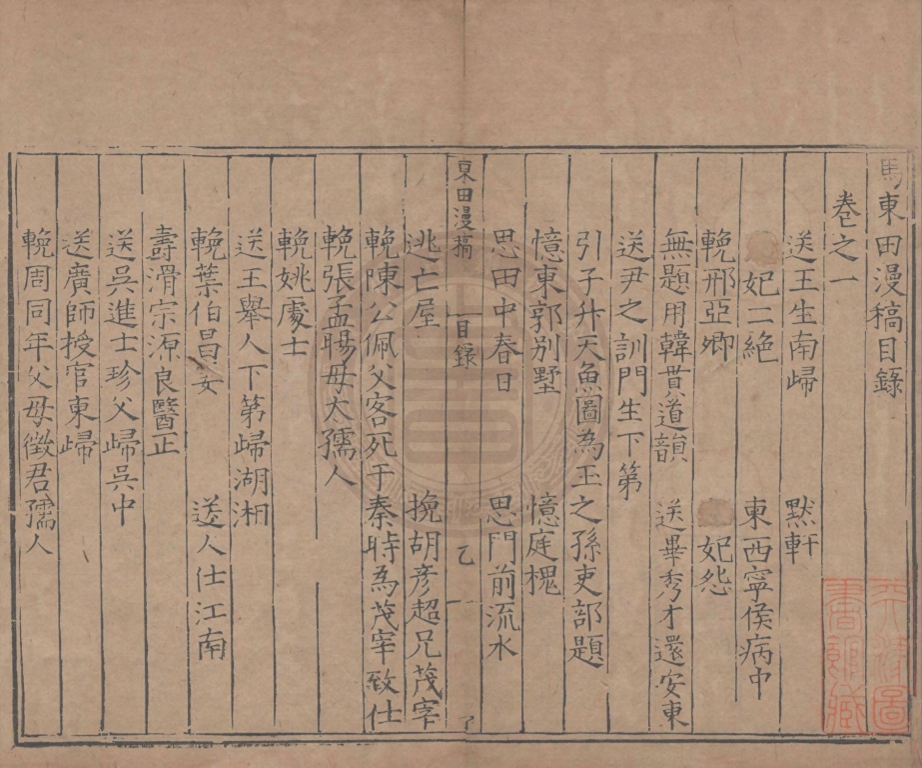 馬東田漫稿目錄
卷之一
送王生南歸 黙軒
妃二絶 東西寧侯病中
輓邢亞卿 妃怨
無題用韓貫道韻 送畢秀才還安東
送尹之訓門生下第
引子升天魚圖為玉之孫吏部題
憶東郭別墅 憶庭槐
思田中春日 思門前流水
東田漫稿 目錄 乙 一
逃亡屋 挽胡彦超兄茂宰
輓陳公佩父客死于秦時為茂宰致仕
輓張孟暘母太孺人
輓姚處士
送王舉人下第歸湖湘
輓葉伯昌女 送人仕江南
壽滑宗源良醫正
送吳進士珍父歸吳中
送廣師授官東歸
輓周同年父母徵君孺人